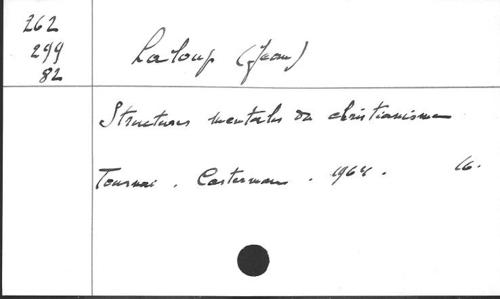 262
299
82
Laloup (Jean)
Structures mentales du christianisme
Tournai . Casterman . 1964 . 16.